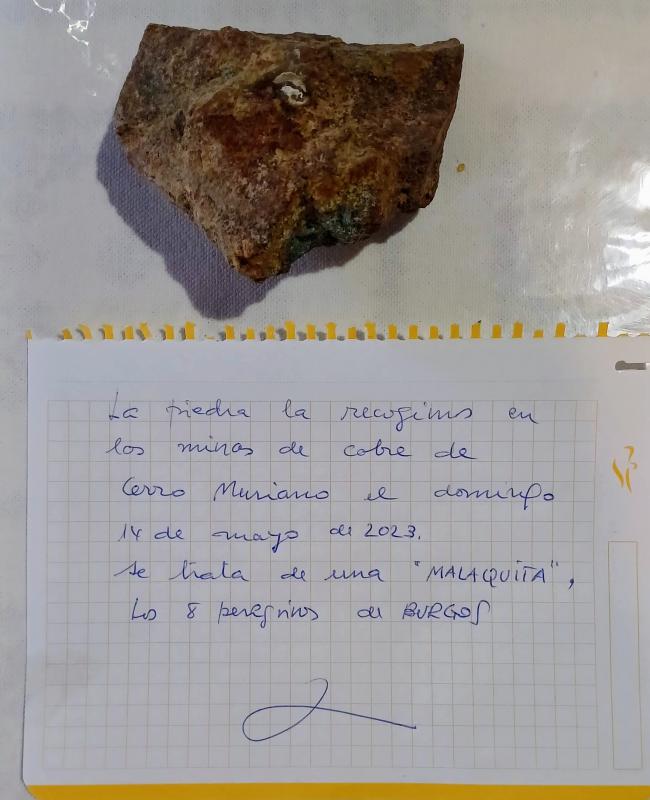 La piedra la recogimos en
las minas de cobre de
Cerro Muriano el domingo
14 de mayo de 2023.
Se trata de una "MALAQUITA",
Los 8 peregrinos de BURGOS